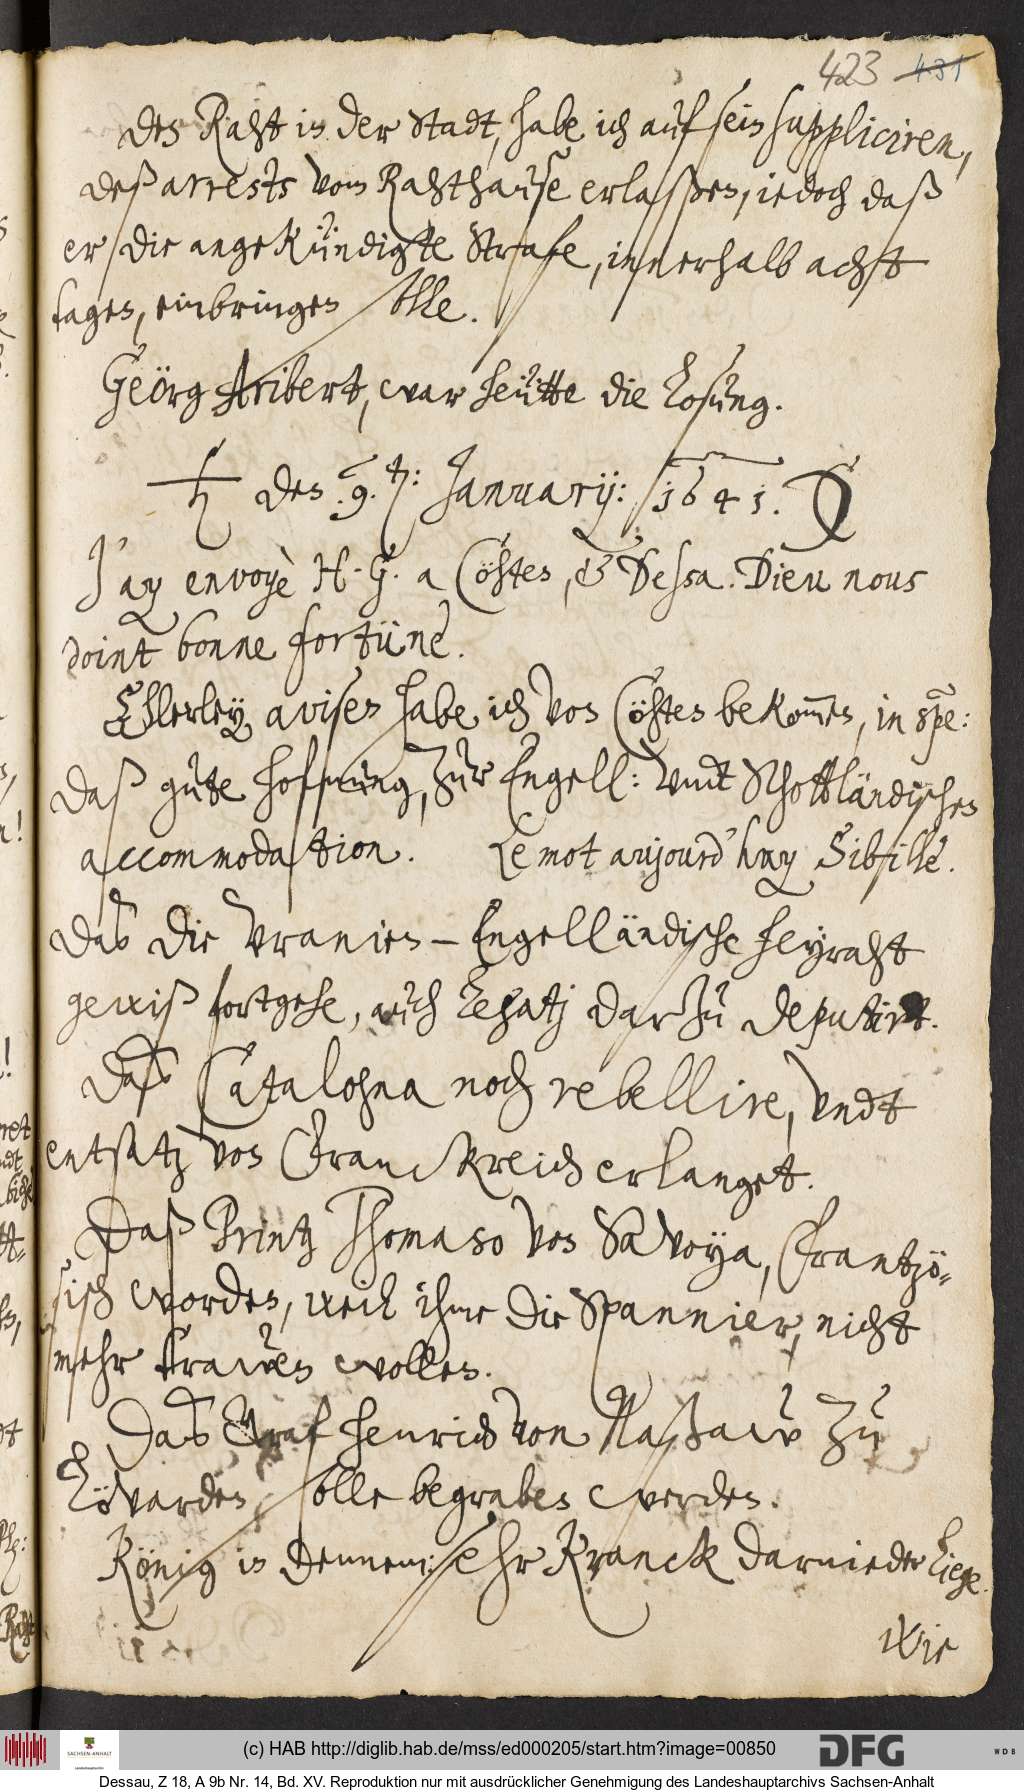 423 431
den Raht in der Stadt, habe ich auf sein suppliciren,
deß arrests vom Rahthause erlaßen, iedoch daß
er die angekündigte Strafe, innerhalb acht
tagen, einbringen solle.
Geörg Aribert, war heütte die Losung.
♄ den .9.ten: January: 1641. ☾
J'ay envoyè H. G. a Cöhten, & Dessa. Dieu nous
doint bonne fortüne.
Ellerley avisen habe ich von Cöhten bekom̅en, in spe:
daß gute hofnung, zur Engell: vndt Schottländischen
accommodation. Le mot aujourd'huy Sibille.
Das die Vranien-Engelländische heyraht
gewiß fortgehe, auch darzu deputirt.
Das Catalohna noch rebellire, vndt
entsatz von Franckreich erlanget.
Daß Printz Thomaso von Savoya, Frantzö-
sisch worden, weil ihme die Spannier, nicht
mehr trawen wollen.
Das Graf Henrich von Naßaw zu
Löwarden, solle begraben werden.
König in Dennem: sehr kranck darnieder liege.
Wie
(c) HAB http://diglib.hab.de/mss/ed000205/start.htm?image=00850
SACHSEN-ANHALT
Landeshauptarchiv
DFG
WDB
Dessau, Z 18, A 9b Nr. 14, Bd. XV. Reproduktion nur mit ausdrücklicher Genehmigung des Landeshauptarchivs Sachsen-Anhalt